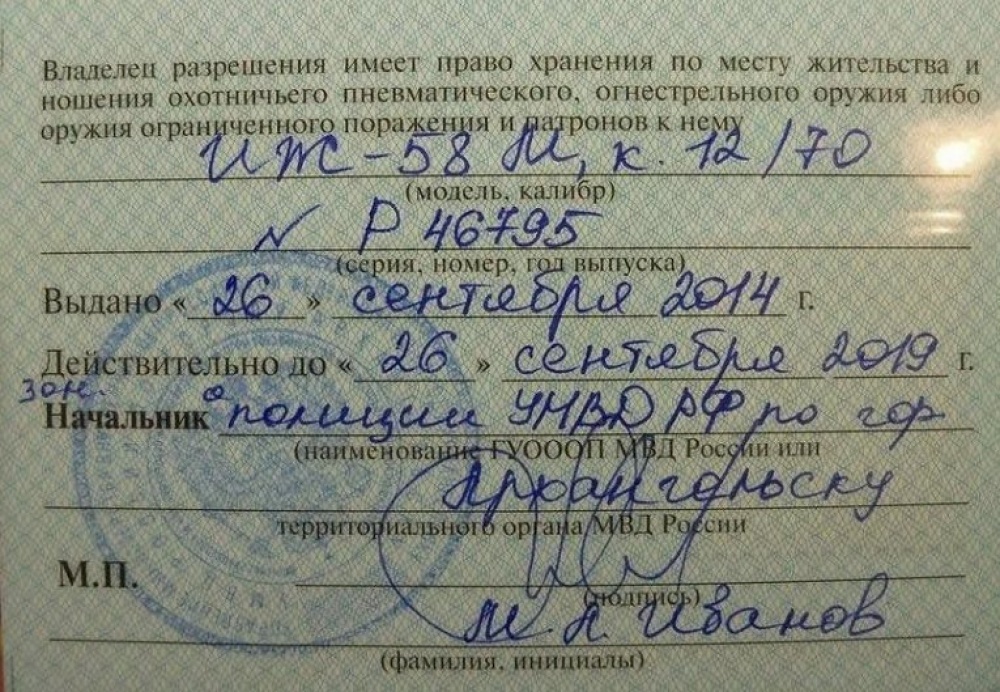 Владелец разрешения имеет право хранения по месту жительства и
ношения охотничьего пневматического, огнестрельного оружия либо
оружия ограниченного поражения и патронов к нему
ИЖ-58 М, к. 12/70
(модель, калибр)
№ Р 46795
(серия, номер, год выпуска)
Выдано «26» сентября 2014 г.
Действительно до «26» сентября 2019 г.
зам.
Начальник полиции УМВД РФ по гор
(наименование ГУОООП МВД России или
Архангельску
территориального органа МВД России
М.П.
(подпись)
Иванов
(фамилия, инициалы)